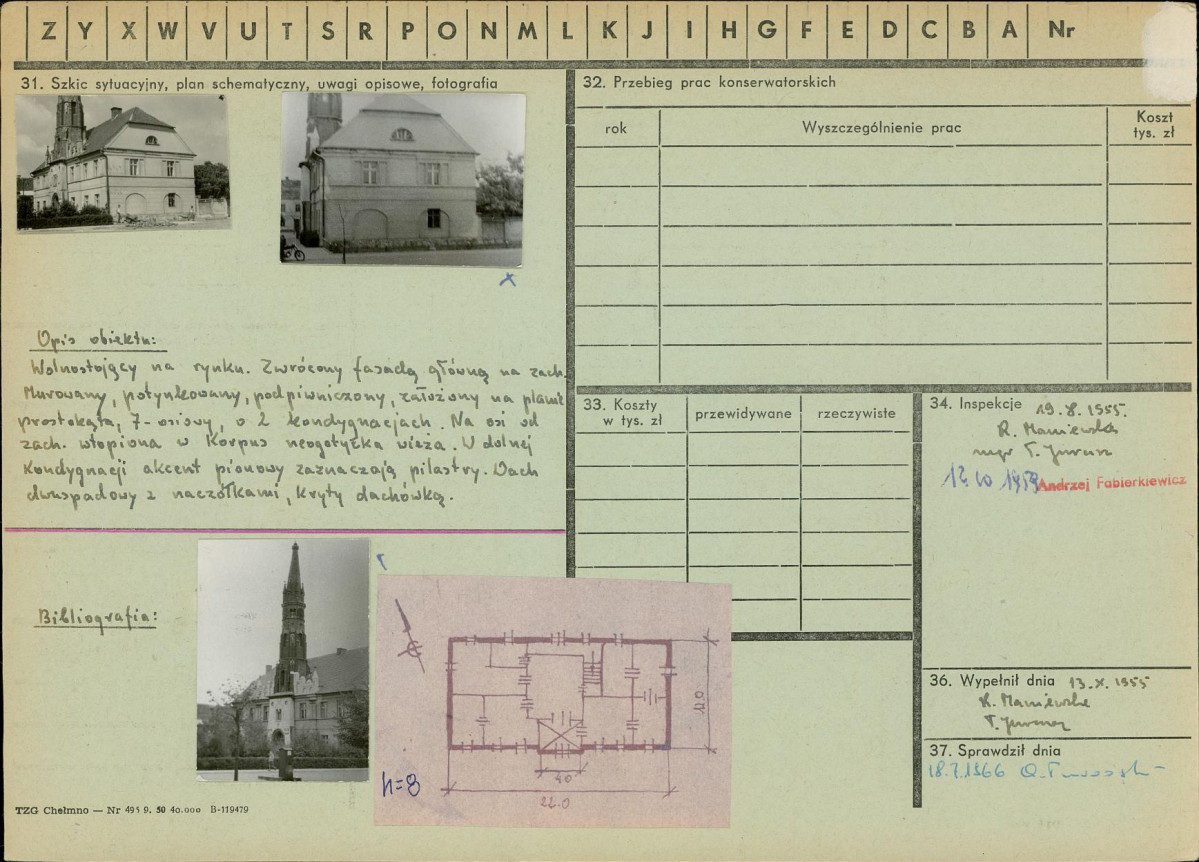 Z Y X W V U T S R P O N M L K J I H G F E D C B A Nr
31. Szkic sytuacyjny, plan schematyczny, uwagi opisowe, fotografia
Opis obiektu:
Wolnostojący na rynku. Zwrócony fasadą główną na zach.
Murowany, potynkowany, podpiwniczony, założony na planie
prostokąta, 7-osiowy, o 2 kondygnacjach. Na osi od
zach. wtopiona w Korpus neogotycka wieża. W dolnej
Kondygnacji akcent pionowy zaznaczają pilastry. Dach
dwuspadowy z naczółkami, Kryty dachówką.
Bibliografia:
h=8
4.0
22.0
12.0
TZG Chełmno — Nr 495 9. 50 40.000 B-119479
32. Przebieg prac konserwatorskich
rok
Wyszczególnienie prac
Koszt
tys. zł
33. Koszty
w tys. zł
przewidywane
rzeczywiste
34. Inspekcje 19.8.1955.
K. Maniewska
mgr T.
12.10 1959 Andrzej Fabierkiewicz
36. Wypełnił dnia 13.X.1955
K. Maniewska
T.
37. Sprawdził dnia
18.7.1966